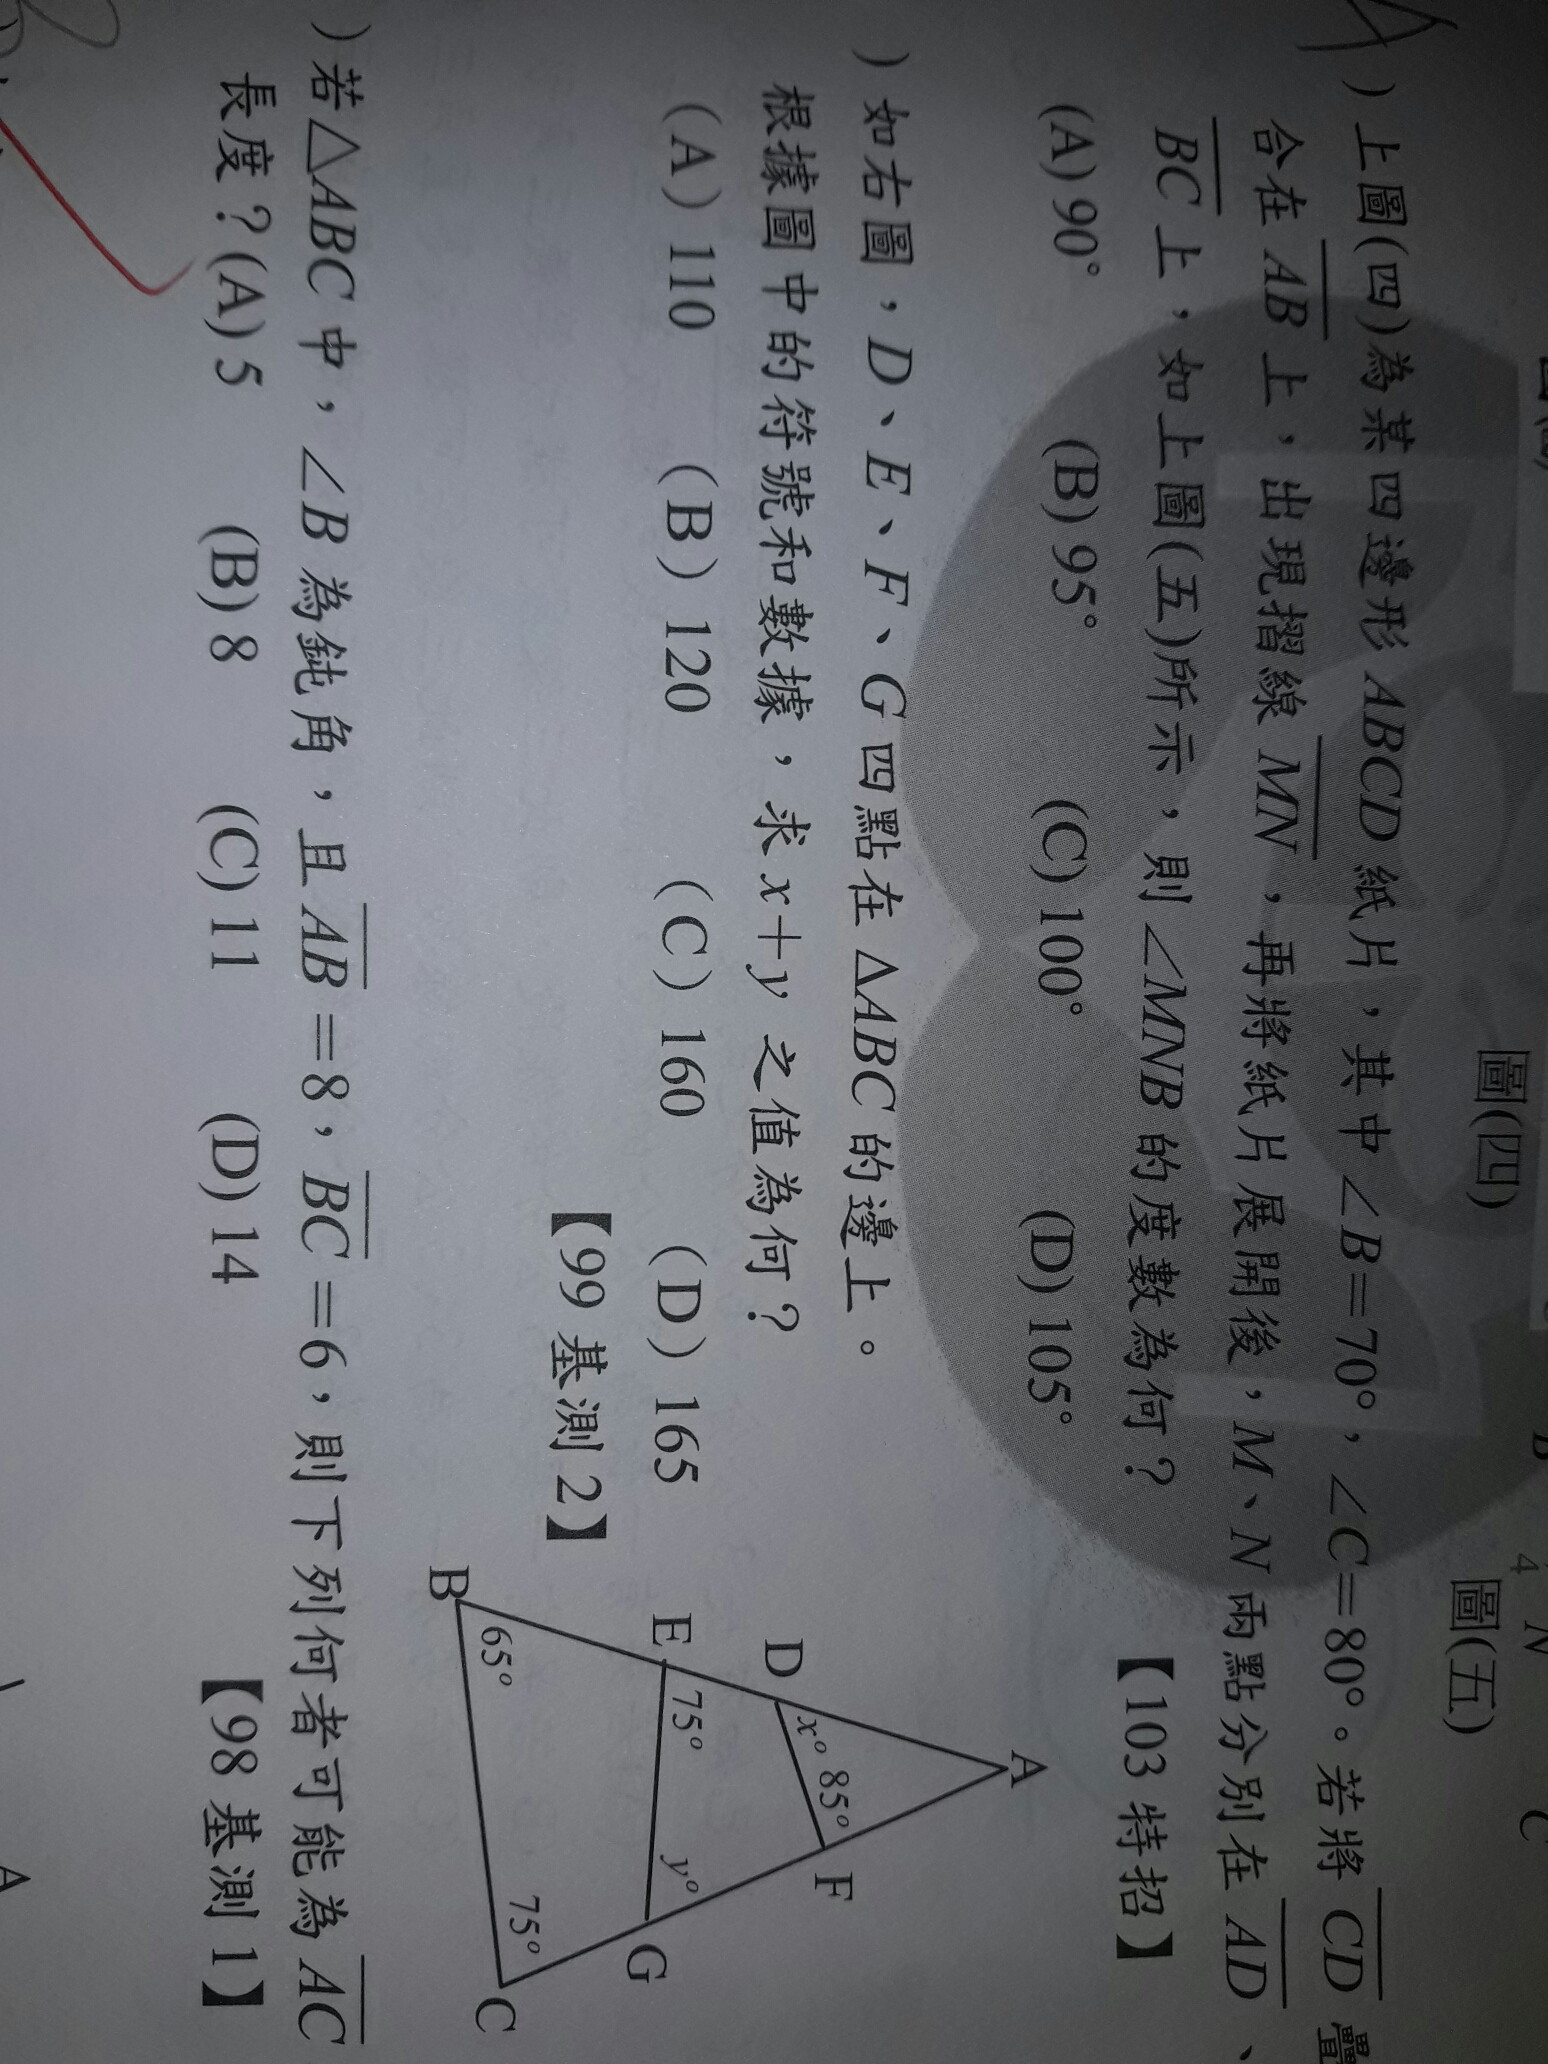 圖(四)
圖(五)
)上圖(四)為某四邊形 ABCD 紙片，其中∠B=70°，∠C=80°。若將 CD 疊
合在 AB 上，出現摺線 MN，再將紙片展開後，M、N 兩點分別在 AD、
BC 上，如上圖(五)所示，則∠MNB 的度數為何？ 【103 特招】
(A) 90° (B) 95° (C) 100° (D) 105°
)如右圖，D、E、F、G 四點在 △ABC 的邊上。
根據圖中的符號和數據，求 x+y 之值為何？
(A) 110 (B) 120 (C) 160 (D) 165
【99 基測 2】
A
D
x° 85°
F
E
75° y°
G
B
65° 75°
C
)若△ABC 中，∠B 為鈍角，且 AB=8，BC=6，則下列何者可能為 AC
長度？(A) 5 (B) 8 (C) 11 (D) 14 【98 基測 1】
A